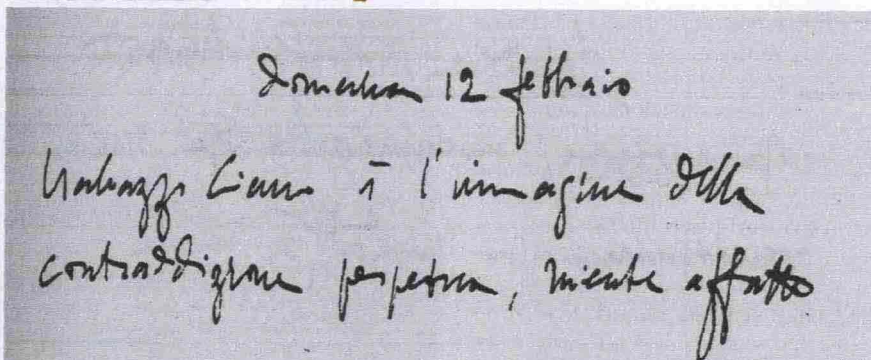 domenica 12 febbraio
Ciano è l'immagine della
contraddizione perpetua, niente affatto